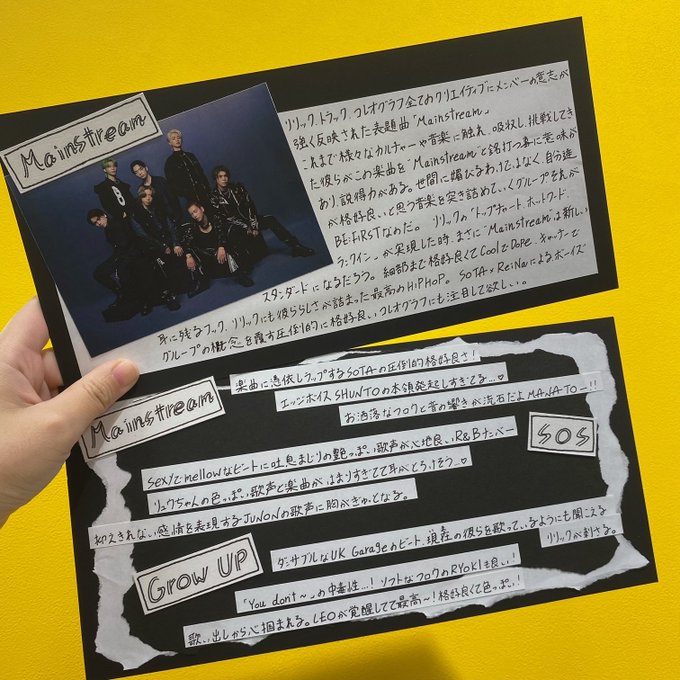 Mainstream
リリック、トラック、コレオグラフ全てのクリエイティブにメンバーの意志が
強く反映された表題曲「Mainstream」
これまで様々なカルチャーや音楽に触れ、吸収し、挑戦してき
た彼らがこの楽曲を"Mainstream"と銘打つ事に意味が
あり、説得力がある。世間に媚びるわけではなく、自分達
が格好良いと思う音楽を突き詰めていくグループそれが
BE:FIRSTなのだ。 リリックの"トップチャート、ホットワード、
ランクイン"が実現した時、まさに"Mainstream"は新しい
スタンダードになるだろう。細部まで格好良くてCoolでDope、キャッチーで
耳に残るフック、リリックにも彼ららしさが詰まった最高のHIPHOP。SOTA×ReiNaによるボーイズ
グループの概念を覆す圧倒的に格好良いコレオグラフにも注目して欲しい。
Mainstream
楽曲に憑依しラップするSOTAの圧倒的格好良さ!
エッジボイスSHUNTOの本領発起しすぎてる…♡
お洒落なフロウと音の響きが流石だよMANATO—!!
SOS
sexyでmellowなビートに吐息まじりの艶っぽい歌声が心地良いR&Bナンバー
リュウちゃんの色っぽい歌声と楽曲がはまりすぎてて耳がとろけそう…♡
抑えきれない感情を表現するJUNONの歌声に胸がぎゅっとなる。
Grow UP
ダンサブルなUK Garageのビート、現在の彼らを歌っているようにも聞こえる
リリックが刺さる。
「You don't〜」の中毒性…!ソフトなフロウのRYOKIも良い!
歌い出しから心掴まれる。LEOが覚醒してて最高〜!格好良くて色っぽい!